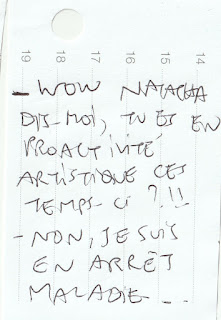 19 18 17 16 15 14
- WOW NATACHA
DIS-MOI, TU ES EN
PROACTIVITÉ
ARTISTIQUE CES
TEMPS-CI ?!!
- NON, JE SUIS
EN ARRÊT
MALADIE...